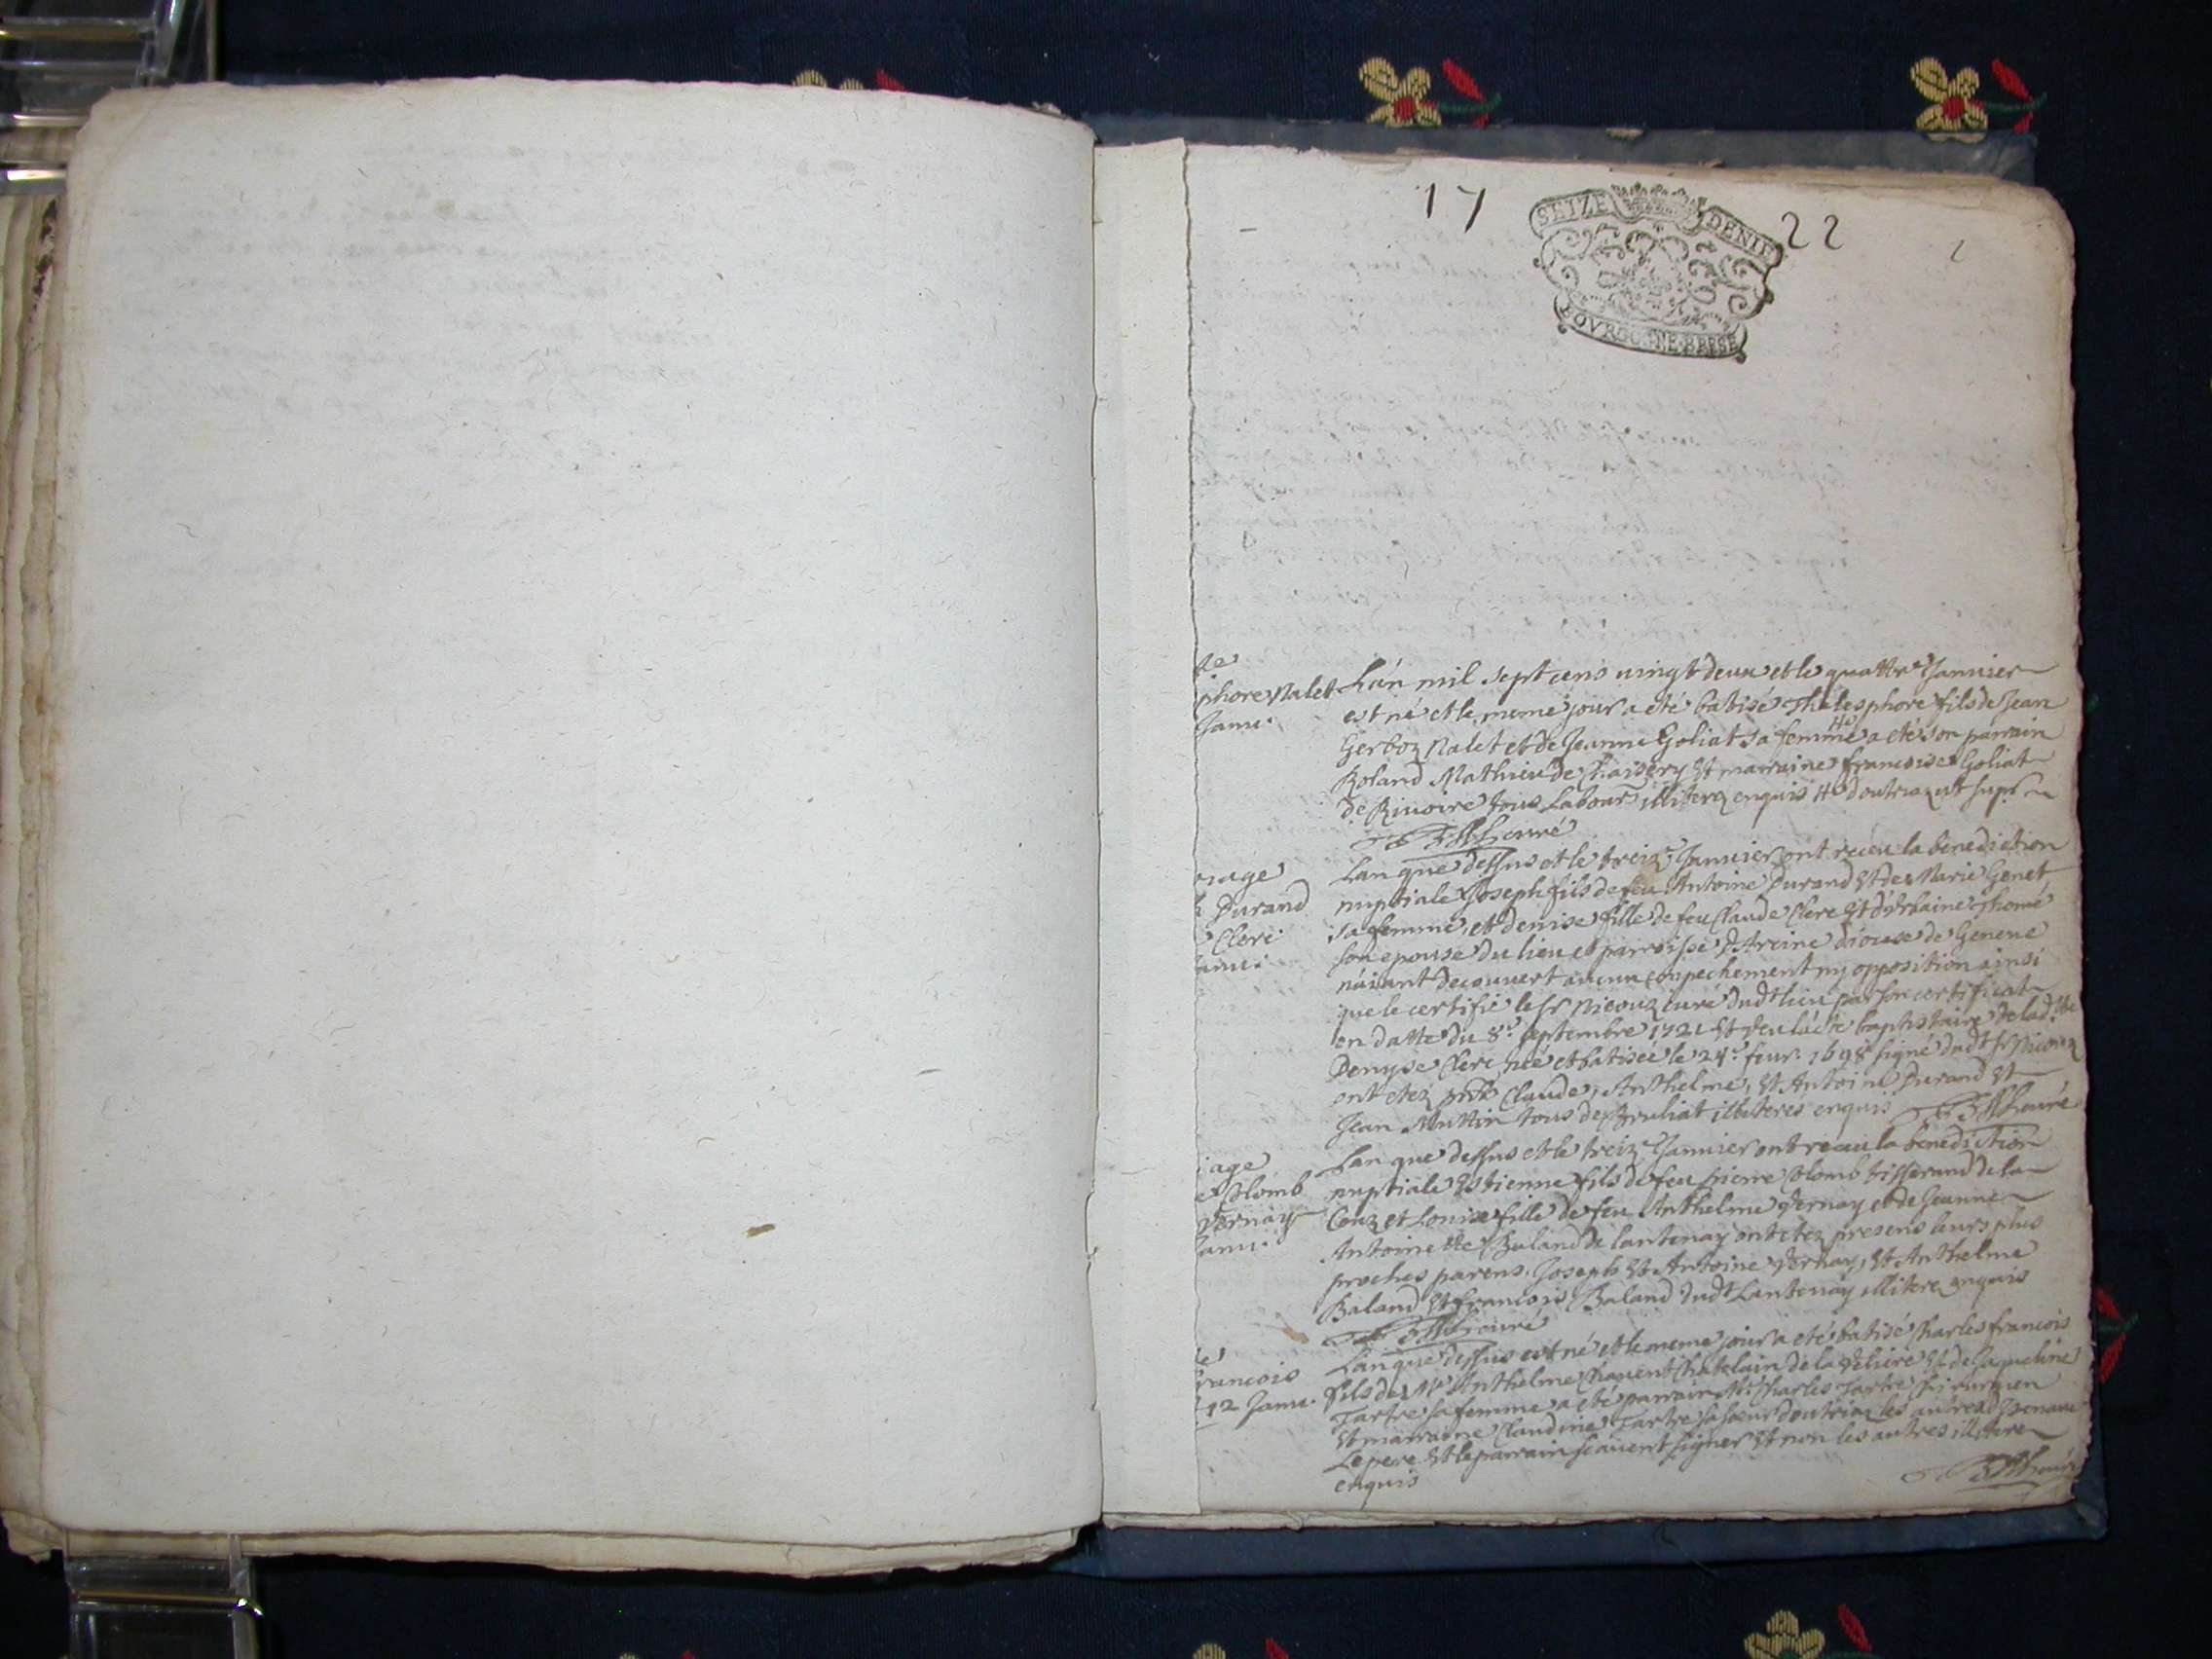 17 22
2
SEIZE DENIE
BOVRGOGNE·BRESE
phore Nalet
Janu.
L'an mil sept cens uingt deux et le quattre Januier
est né et le meme jour a été batisé Thelesphore fils de Jean
Gerboz Nalet et de Jeanne Goliat sa femme a été son parrain
Roland Mathieu de Chaisery et marraine francoise Goliat
de Riuoire tous Labour illiterez enquis doutriaz ut supr
curé
riage
Durand
Clerc
Lan que dessus et le treiz. Januier ont receu la benediction
nuptiale Joseph fils de feu Antoine Durand et de Marie Genet
sa femme, et denise fille de feu Claude Clerc et d'Urbaine Thomé
son epouse du lieu et parroisse D'Areine diocese de Geneue
n'aiant decouuert aucun empechement ny opposition ainsi
que le certifie le sr Nicouz curé dudt lieu par son certificat
en datte du 8e septembre 1721 et veu l'acte baptistaire de lad. tte
Denyse Clerc née et batisée le 24e feur. 1698 signé dudt sr Nicouz
ont etez Claude, Anthelme, et Antoine Durand et
Jean Muttin tous de Bruliat illiteres enquis curé
iage
Colomb
Vernay
Janu.
Lan que dessus et le treiz. Januier ont receu la benediction
nuptiale Estienne fils de feu pierre Colomb tisserand de la
Couz et Louise fille de feu Anthelme Vernay et de Jeanne
Antoinette Baland de lantenay ont etez presens leurs plus
proches parens. Joseph et Antoine Vernay, et Anthelme
Baland et francois Baland dudt Lantenay illiterez enquis
curé
francois
12 Janu.
Lan que dessus est né et le meme jour a été batisé Charles francois
fils de Me Anthelme Chauent Chatelain de la Veliere et de Jaqueline
Tartre sa femme a été parrain Mr Charles Tartre chirurgien
et marraine Claudine Tartre sa soeur doutriaz les autres
Le pere et le parrain scauent signer et non les autres illiterez
enquis
curé